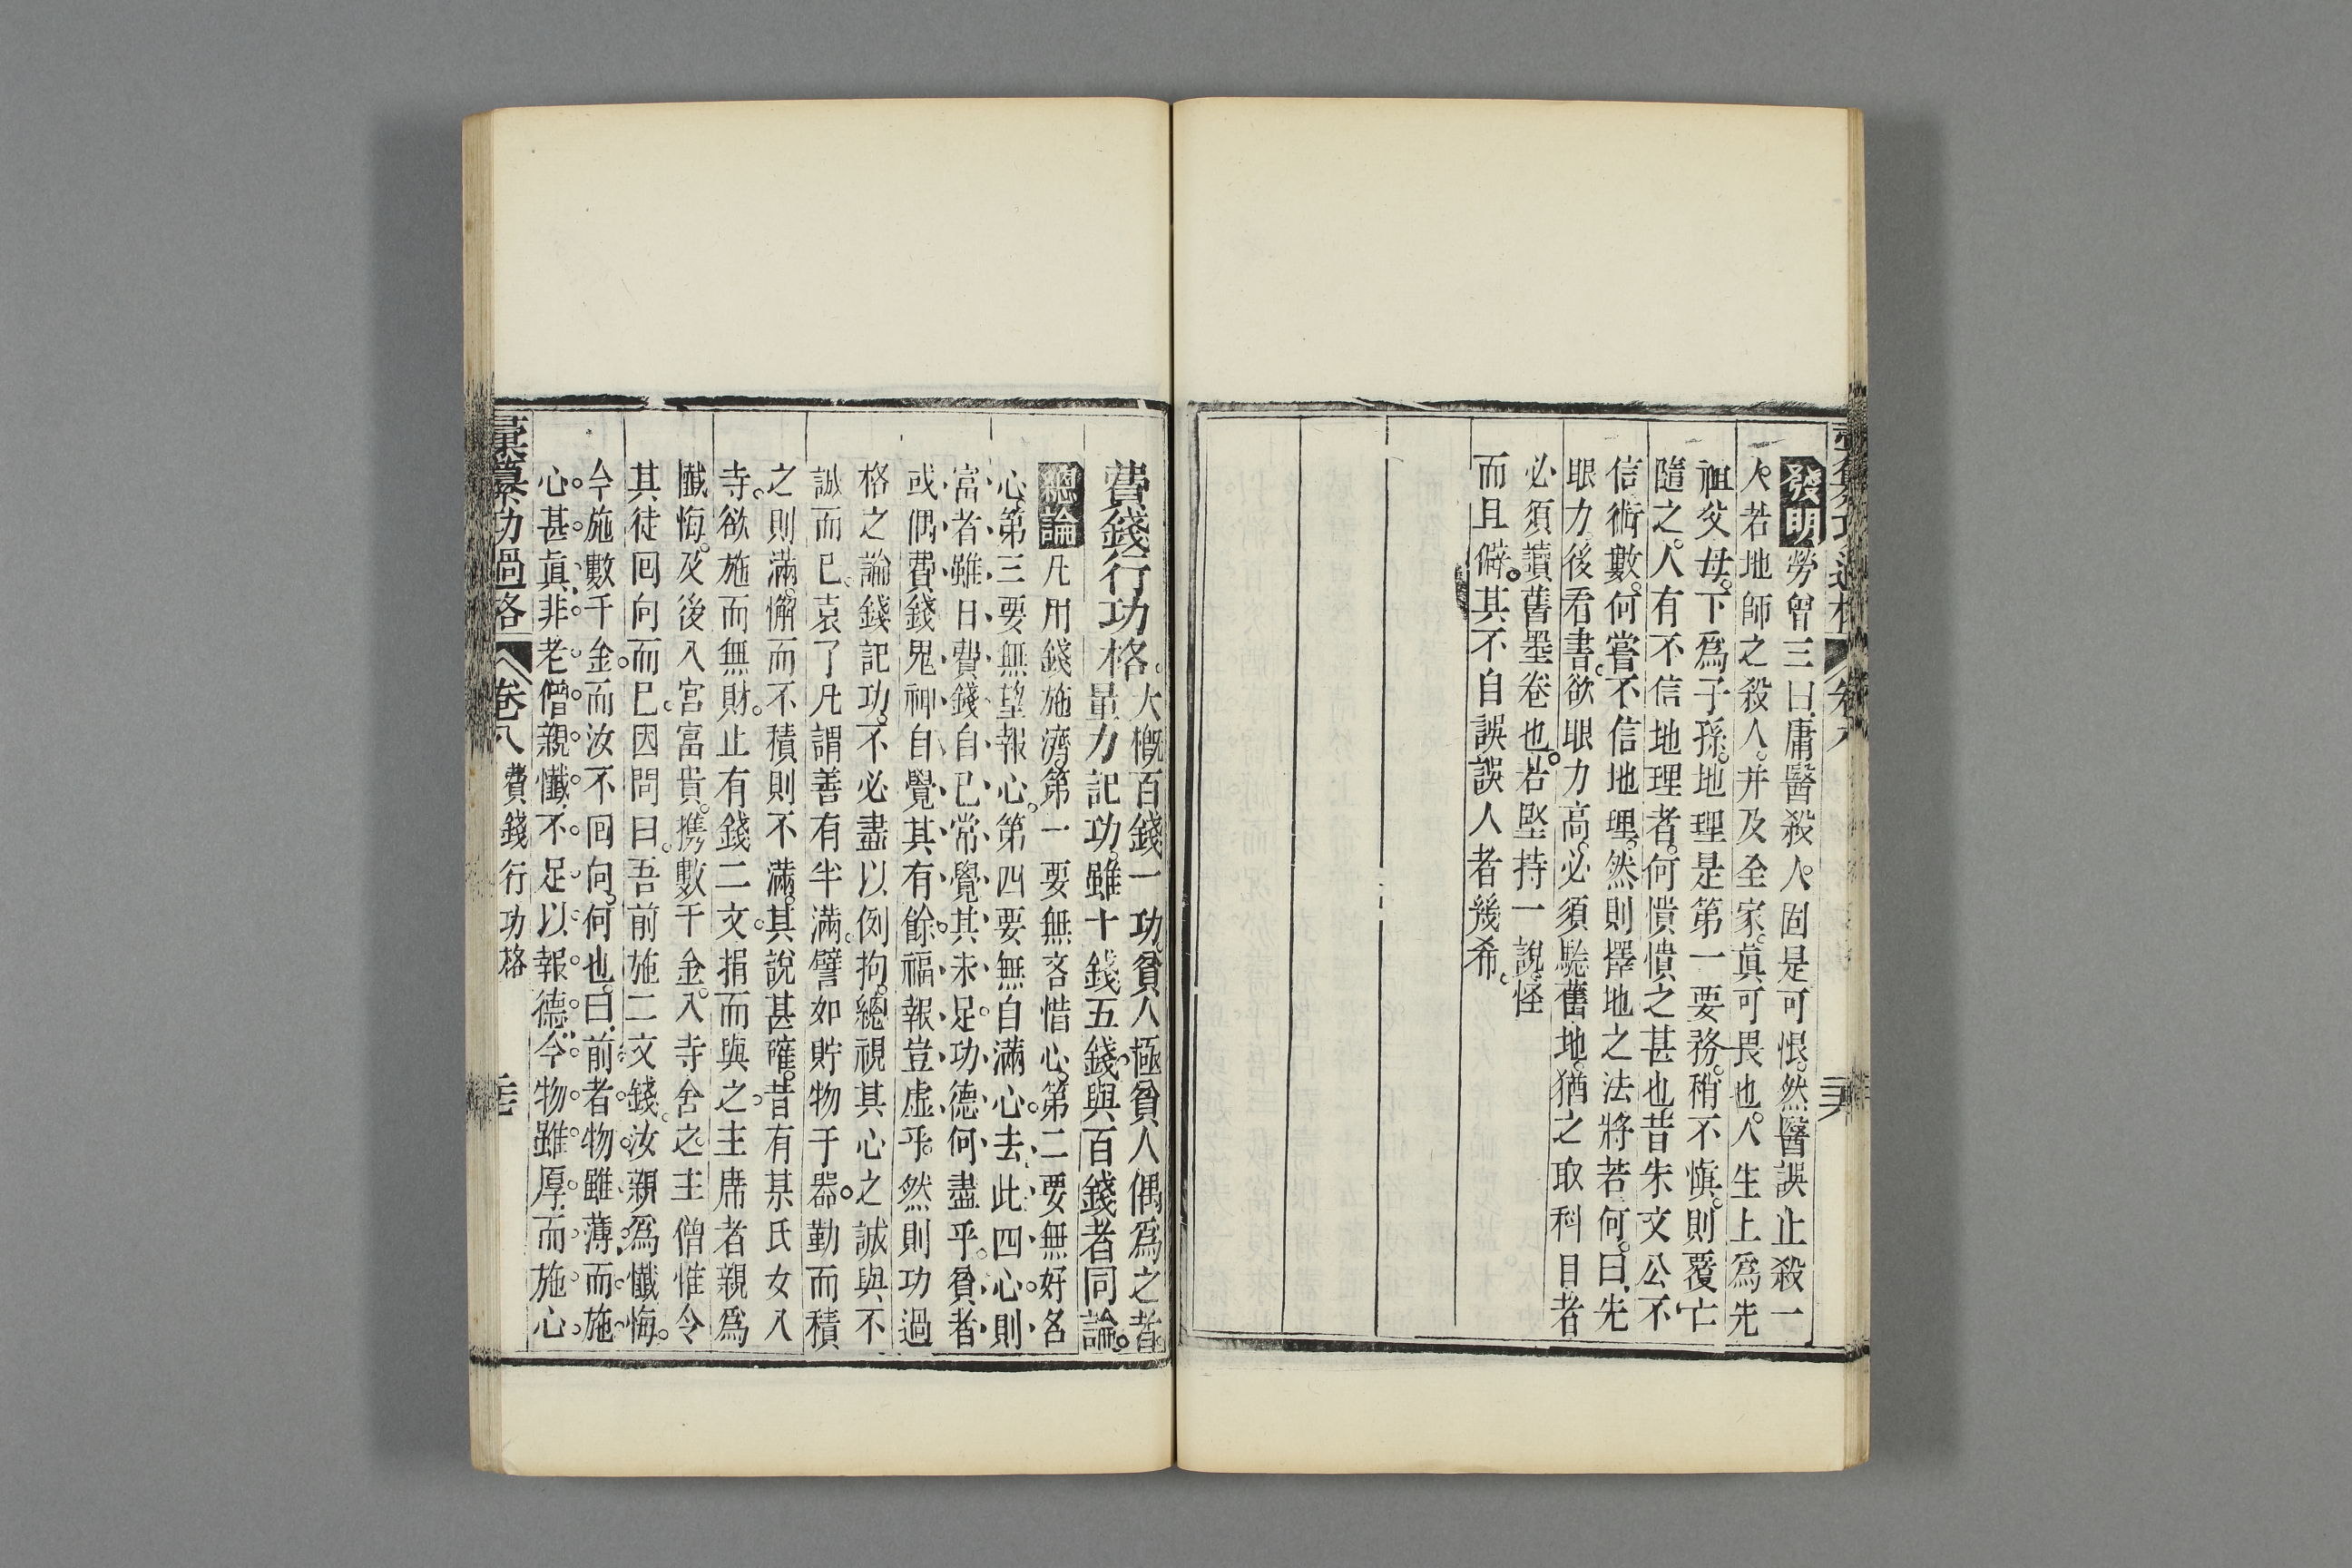 發明勞曾三曰庸醫殺人。人固是可恨。然醫誤止殺一
人。若地師之殺人。并及全家。眞可畏也。人生上爲先
祖父母。下爲子孫。地理是第一要務。稍不慎。則覆亡
隨之。人有不信地理者。何憒憒之甚也昔朱文公不
信術數。何嘗不信地理。然則擇地之法將若何。曰。先
眼力。後看書。欲眼力高。必須騐舊地。猶之取科目者
必須讀舊墨卷也。若堅持一說。怪
而且僻。其不自誤誤人者幾希。
費錢行功格。大槪百錢一功。貧人極貧人偶爲之者
量力記功。雖十錢五錢。與百錢者同論。
總論凡用錢施濟。第一要無吝惜心。第二要無好名
心。第三要無望報心。第四要無自滿心。去此四心。則
富者雖日費錢。自已常覺其未足。功德何盡乎。貧者
或偶費錢。鬼神自覺其有餘。福報豈虛乎。然則功過
格之論錢記功。不必盡以例拘。總視其心之誠與不
誠而已。袁了凡謂善有半滿。譬如貯物于器。勤而積
之則滿。懈而不積則不滿。其說甚確。昔有某氏女入
寺。欲施而無財。止有錢二文。捐而與之。主席者親爲
懺悔。及後入宮富貴。携數千金。入寺舍之。主僧惟令
其徒回向而已。因問曰。吾前施二文錢。汝親爲懺悔。
今施數千金。而汝不回向。何也。曰。前者物雖薄。而施
心甚眞。非老僧親懺。不足以報德。今物雖厚。而施心
彙纂功過格 卷八 費錢行功格